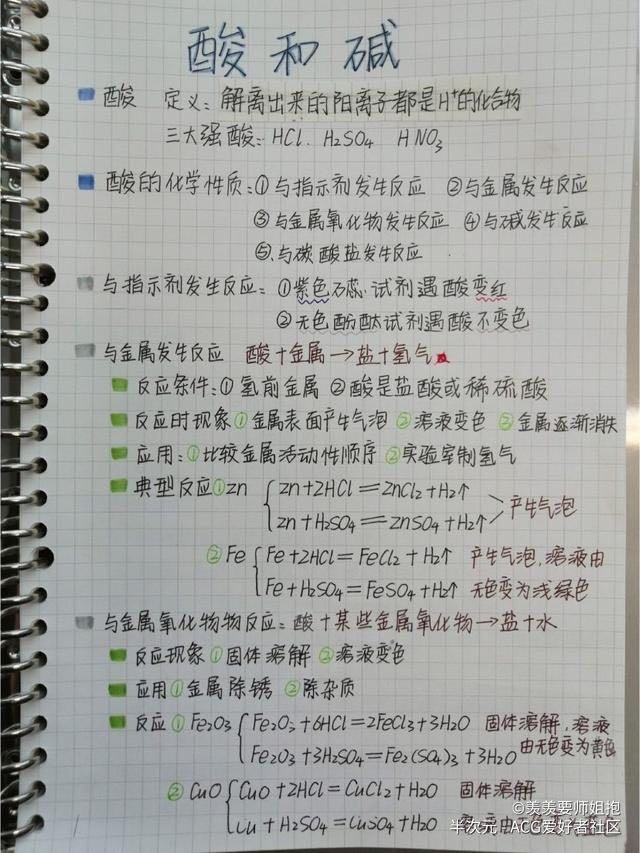 酸和碱
酸 定义：解离出来的阳离子都是H⁺的化合物
三大强酸：HCl. H₂SO₄ HNO₃
酸的化学性质：①与指示剂发生反应 ②与金属发生反应
③与金属氧化物发生反应 ④与碱发生反应
⑤与碳酸盐发生反应
与指示剂发生反应：①紫色石蕊试剂遇酸变红
②无色酚酞试剂遇酸不变色
与金属发生反应 酸+金属→盐+氢气
反应条件：①氢前金属 ②酸是盐酸或稀硫酸
反应时现象①金属表面产生气泡 ②溶液变色 ③金属逐渐消失
应用：①比较金属活动性顺序 ②实验室制氢气
典型反应①zn
zn+2HCl=ZnCl₂+H₂↑
zn+H₂SO₄=ZnSO₄+H₂↑
产生气泡
②Fe
Fe+2HCl=FeCl₂+H₂↑ 产生气泡，溶液由
Fe+H₂SO₄=FeSO₄+H₂↑ 无色变为浅绿色
与金属氧化物物反应：酸+某些金属氧化物→盐+水
反应现象①固体溶解 ②溶液变色
应用①金属除锈 ②除杂质
反应①Fe₂O₃
Fe₂O₃+6HCl=2FeCl₃+3H₂O 固体溶解，溶液
Fe₂O₃+3H₂SO₄=Fe₂(SO₄)₃+3H₂O 由无色变为黄色
②CuO
CuO+2HCl=CuCl₂+H₂O 固体溶解
Cu+H₂SO₄=CuSO₄+H₂O
@羡羡要师姐抱
半次元-ACG爱好者社区